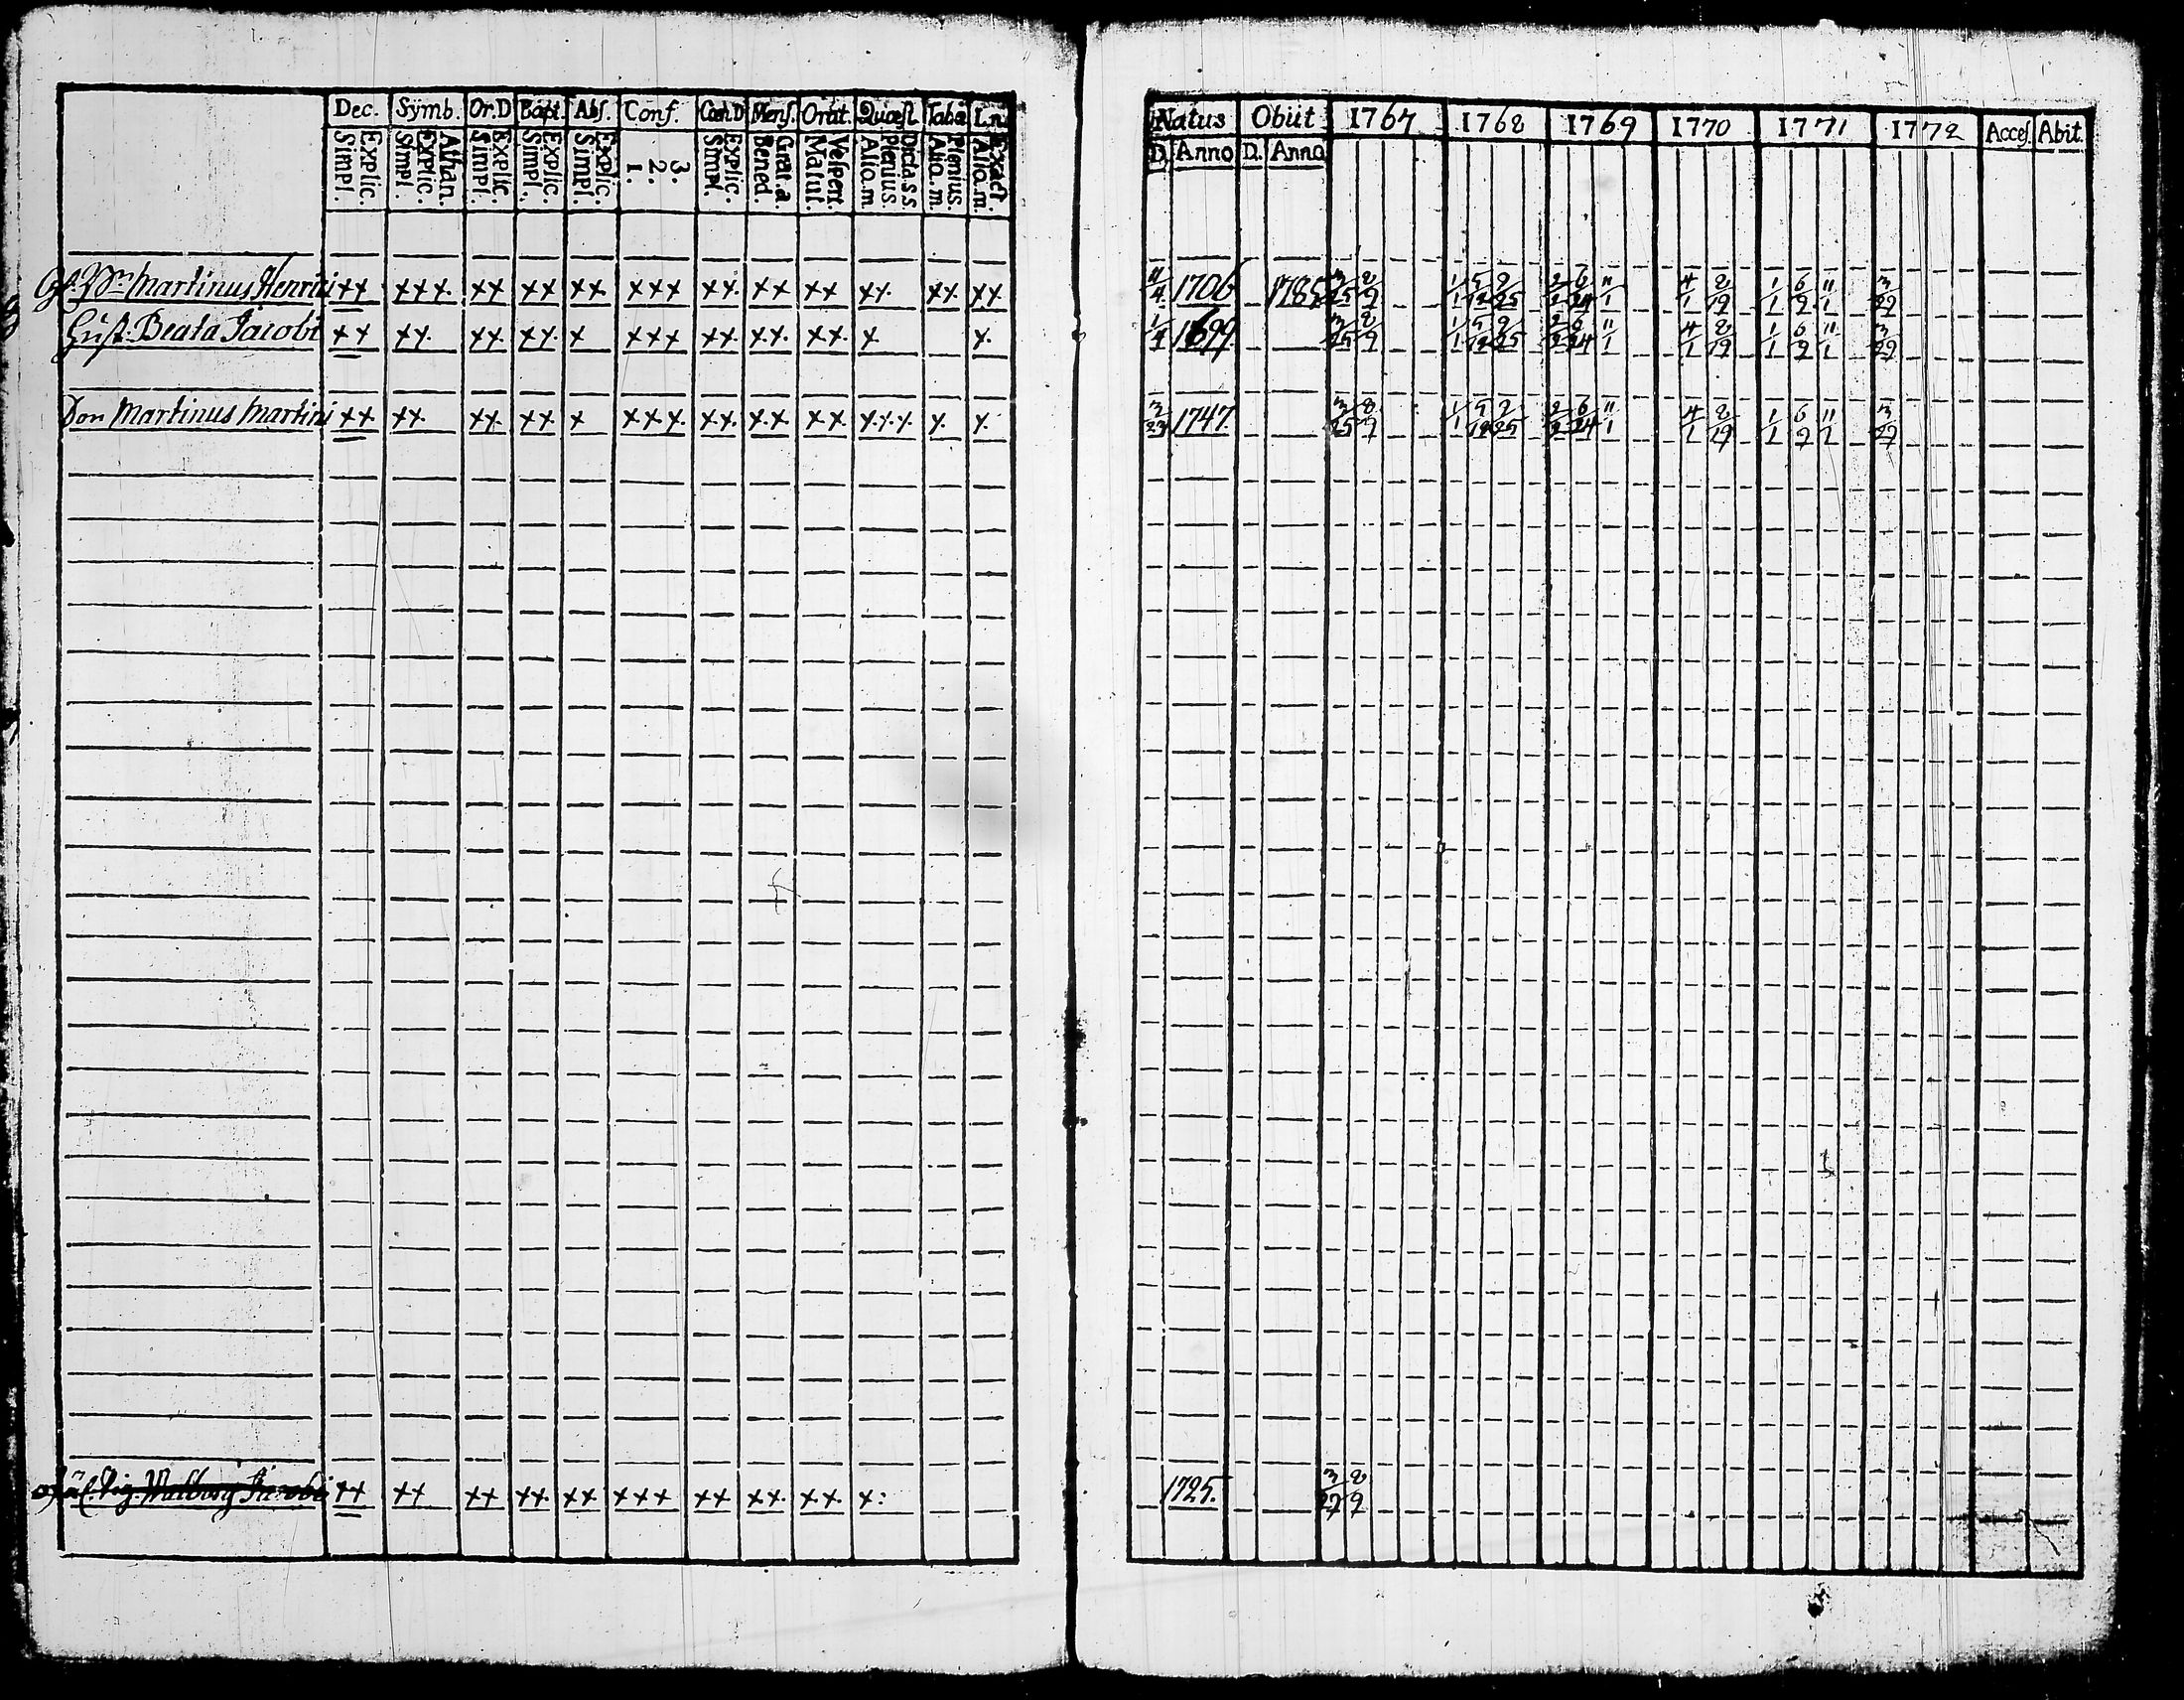 Dec. Symb. Or.D Bapt. Abs. Conf. Cœn.D Mens. Orat. Quæst. Taba Ln.
Explic. Simpl. Athan. Explic. Simpl. Explic. Simpl. Explic. Simpl. Explic. Simpl. 3. 2. 1. Explic. Simpl. Grat.a. Bened. Vespert. Matut. Dicta.s.s. Plenius. Alio.m. Plenius. Alio.m. Exact. Alio.m.
Martinus Henrici xx xxx. xx xx xx. xxx xx. xx xx xx. xx. xx
Hust. Beata Jacobi xx xx. xx. xx. x xxx xx. xx. xx. x x.
Son Martinus Martini xx xx. xx. xx. x xxx. xx. xx xx. x.x.x. x. x.
Walborg Jacobi xx xx xx xx. xx xxx xx xx. xx. x:
Natus Obiit 1767 1768 1769 1770 1771 1772 Acces. Abit.
D. Anno D. Anno
11/4 1706 1785 3/25 8/9 1/1 5/12 9/25 2/2 6/24 11/1 4/1 8/19 1/1 6/9 11/1 3/29
1/4 1699. 3/25 8/9 1/1 5/12 9/25 2/2 6/24 11/1 4/1 8/19 1/1 6/9 11/1 3/29
3/23 1747. 3/25 8/9 1/1 5/12 9/25 2/2 6/24 11/1 4/1 8/19 1/1 6/9 11/1 3/29
1725. 3/29 8/9